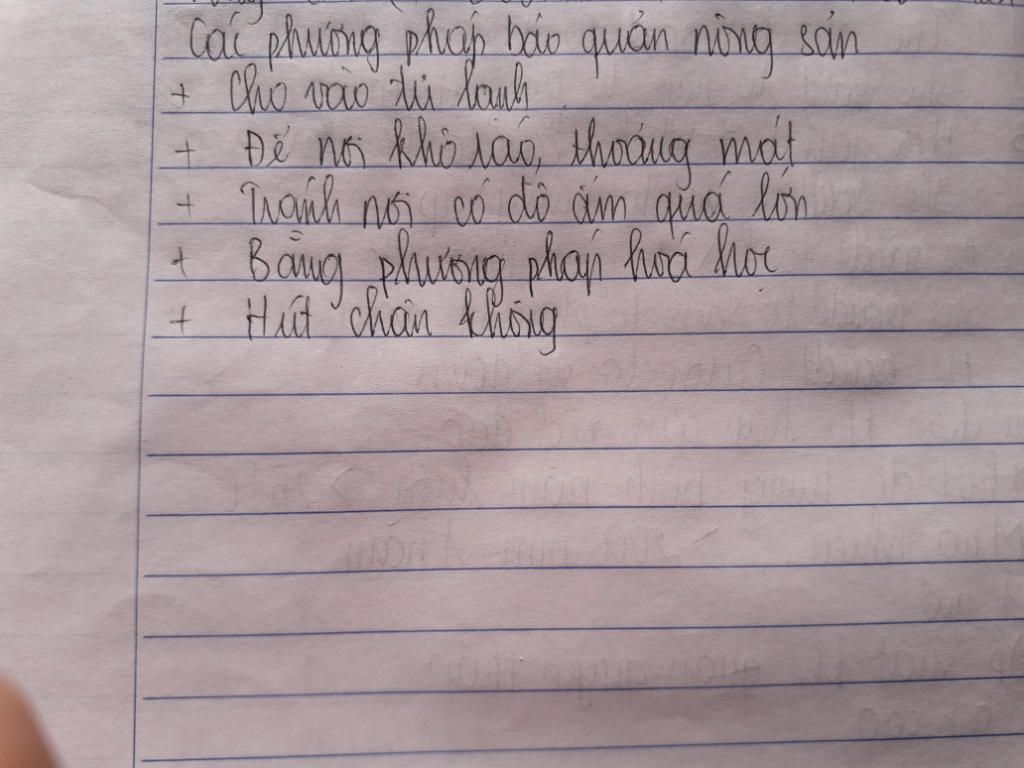 Các phương pháp bảo quản nông sản
+ Cho vào tủ lạnh
+ Để nơi khô ráo, thoáng mát
+ Tránh nơi có độ ẩm quá lớn
+ Bằng phương pháp hoá học
+ Hút chân không